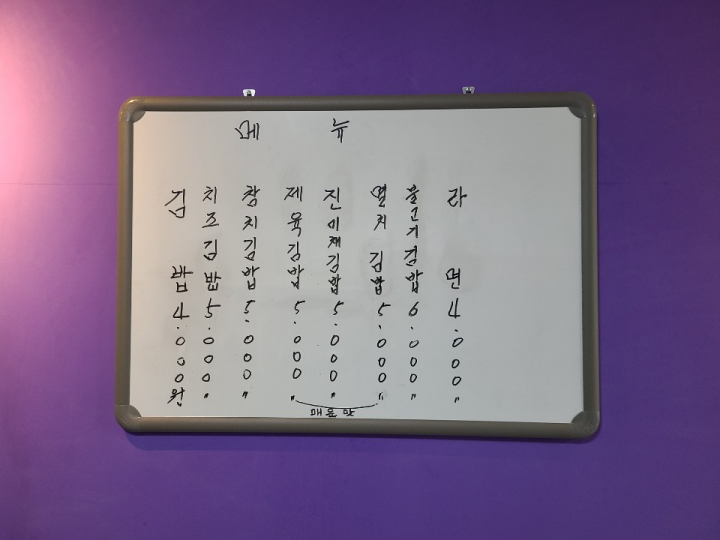 메뉴
김밥 4.000원
치즈김밥 5.000〃
참치김밥 5.000〃
제육김밥 5.000〃
진미채김밥 5.000〃
멸치김밥 5.000〃
불고기김밥 6.000〃
라면 4.000〃